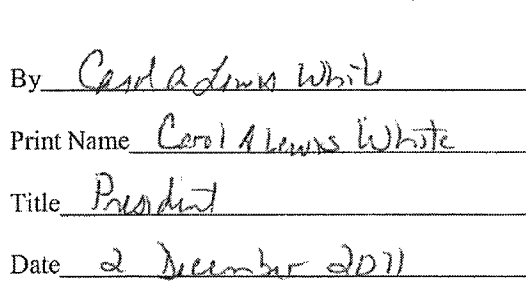 By Carol A Lewis White
Print Name Carol A Lewis White
Title President
Date 2 December 2011